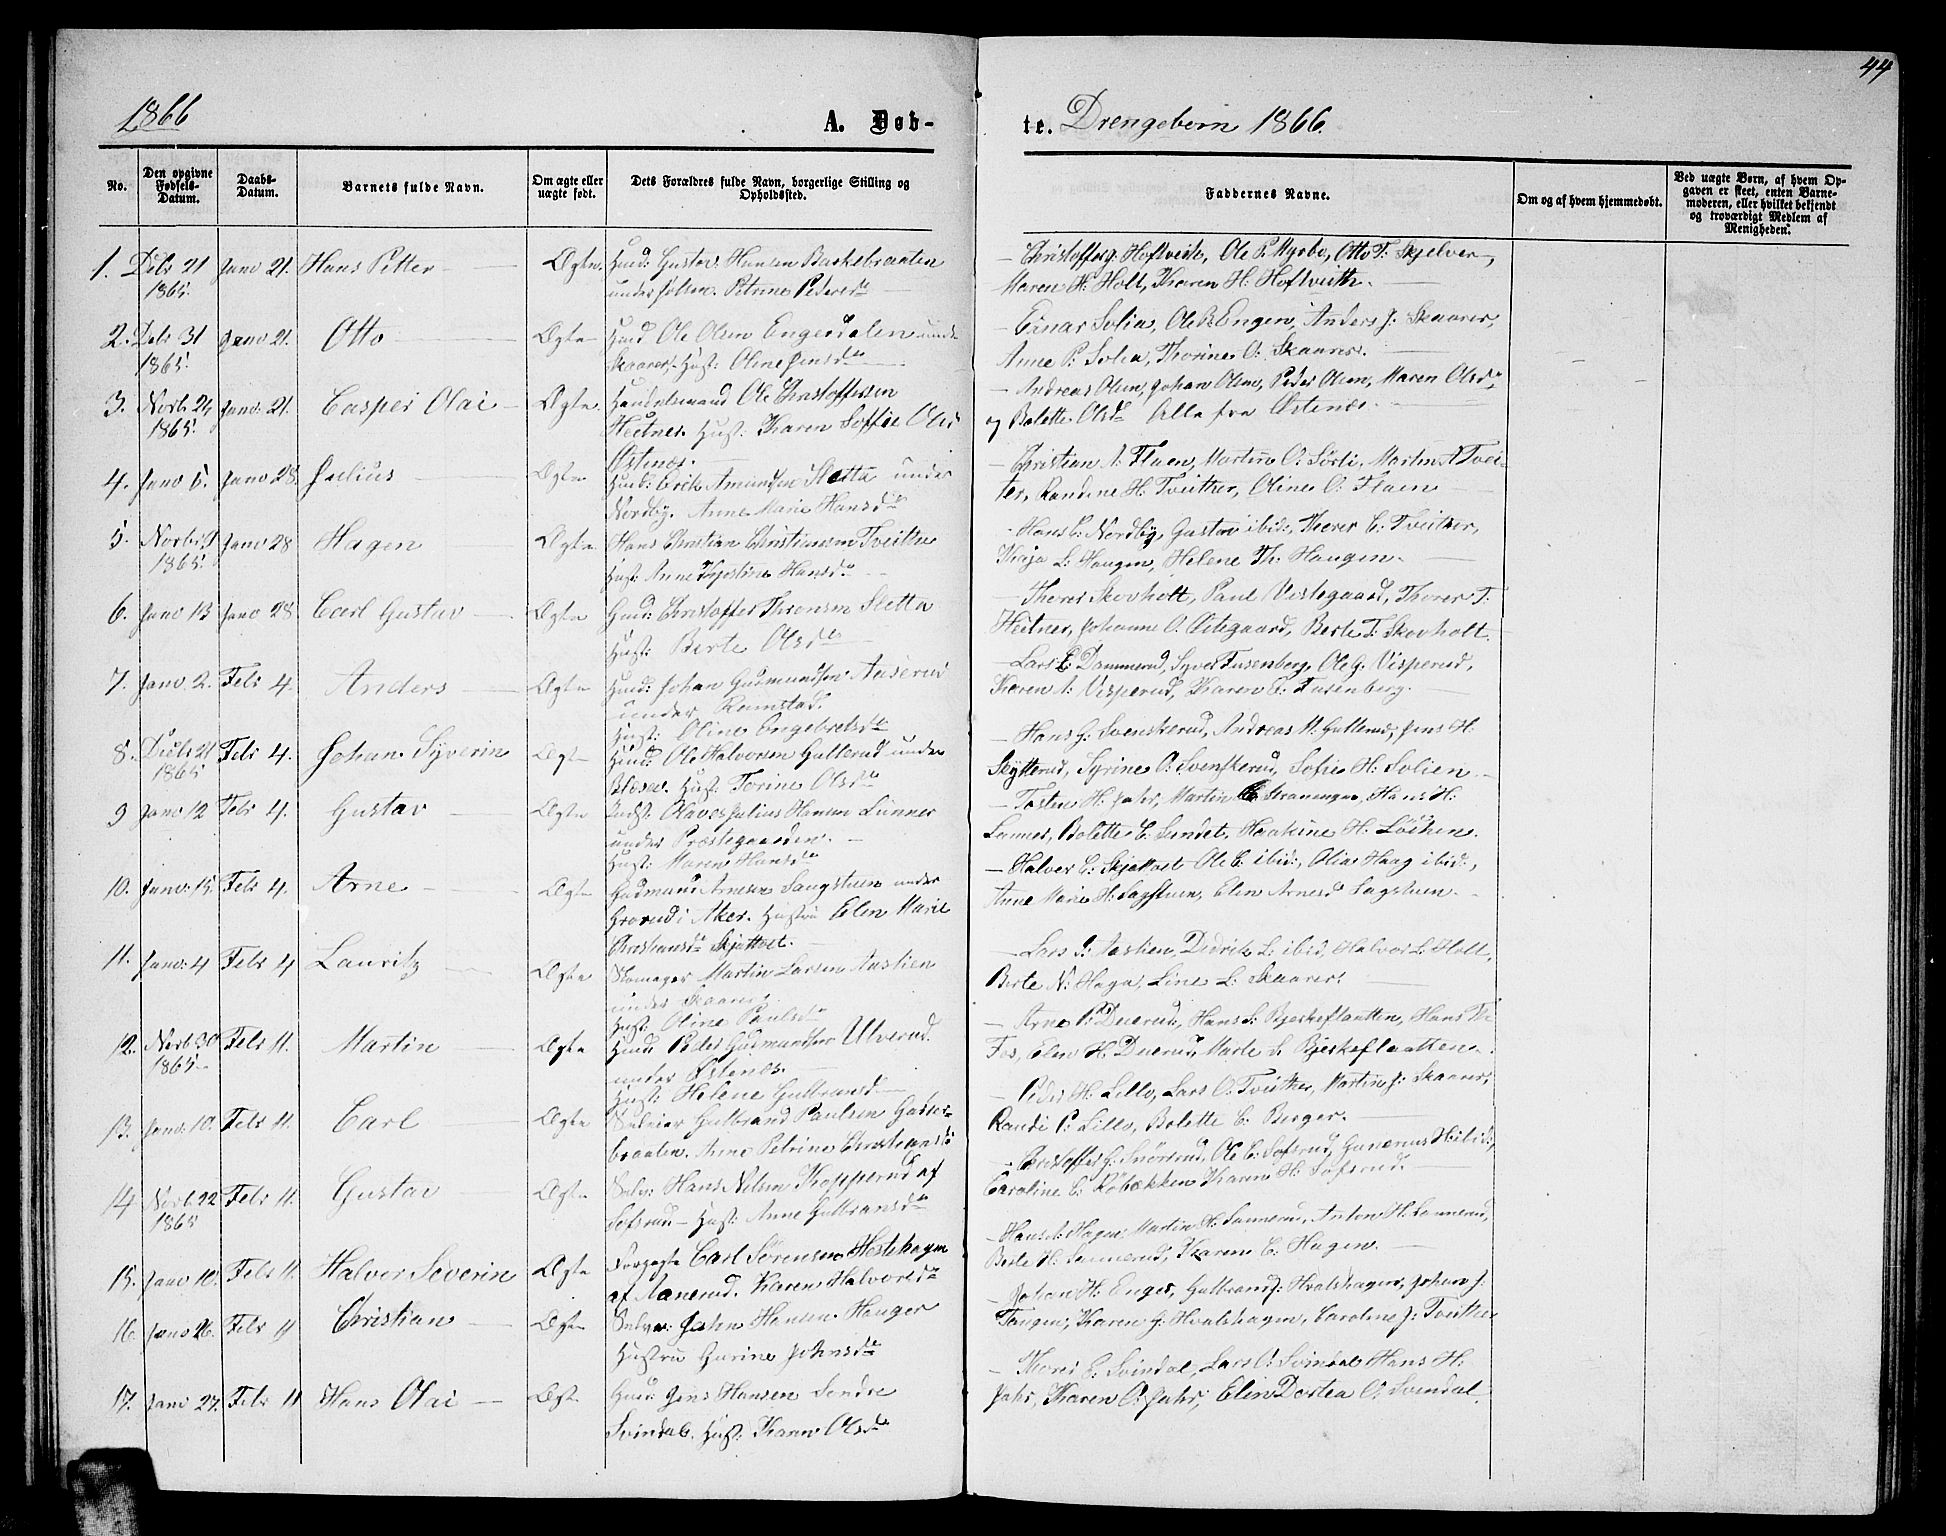 44
1866
A. Døb-
te. Drengebørn 1866.
No.
Den opgivne Fødsels-Datum.
Daabs-Datum.
Barnets fulde Navn.
Om ægte eller uægte født.
Dets Forældres fulde Navn, borgerlige Stilling og Opholdssted.
Faddernes Navne.
Om og af hvem hjemmedøbt.
Ved uægte Børn, af hvem Opgaven er skeet, enten Barnemoderen, eller hvilket bekjendt og troværdigt Medlem af Menigheden.
1. Decbr 21 1865. Janv 21. Hans Petter Ægte. Husd: Gustav Hansen
under Petrine Pedersdr
Ole P. Myrbo, Otto T. Skjelver,
Maren H. Holt, Karen H. Hoftveith.
2. Decbr 31 1865. Janv 21. Otto Ægte Husd Ole Olsen Engerdalen under
Skaarer. Hust: Oline Jensdr
Einar Solia, Ole B. Engen, Anders J. Skaarer,
Anne P. Solia, Thorine O. Skaarer.
3. Novbr 24 1865. Janv. 21. Casper Olai Ægte. Handelsmand Ole Christoffersen
Heitner. Hust: Karen Soffie Olsd
Østenes.
Andreas Olsen, Johan Olsen, Peder Olsen, Maren Olsdr
og Bolette Olsdr Alle fra Østenes.
4. Janv 5. Janv 28 Julius Ægte Husd: Erik Amundsen Sletta under
Nordby. Anne Marie Hansdr
Christian A. Flaen, Martin O. Sørli, Martin A Tvei-
ter, Randine H. Tveither, Oline O. Flaen
5. Novbr 9 1865. Janv 28 Hagen Ægte Hans Christian Christiansen Tveither
Hust: Anne Kjerstine Hansdr
Hans C. Nordby, Gustav ibid:, Thorer C. Tveither,
Kaja L. Haugen, Helene Th. Haugen.
6. Janv 13 Janv 28. Carl Gustav Ægte Husd: Christoffer Thronsen Sletta
Hust: Berte Olsdr
Thorer Skovholt, Paul Vestegaard, Thorer T.
Heitner, Johanne O. Østegaard, Berte T. Skovholt.
7. Janv. 2. Febr 4. Anders Ægte Husd: Johan Gudmundsen Aaserud
under Ramstad.
Hust: Oline Engebretsdr
Lars E. Dammerud, Syver Tusenberg, Ole G. Visperud,
Karen A. Visperud, Karen E. Tusenberg.
8. Decbr 21 1865 Febr 4. Johan Syverin Ægte Husd: Ole Halvorsen Gullerud under
Hust: Torine Olsdr
Hans G. Svenskerud, Andreas H. Gullerud, Jens H.
Skytterud, Syrine O. Svenskerud, Sofie H. Solien
9 Janv 12 Febr 4. Gustav Ægte Indst: Olaves Julius Hansen Lunner
under Præstegaarden.
Hust: Maren Hansdr
Tosten H. Jahr, Martin Hans H.
Lunner, Bolette C. Sundet, Haakine H. Løchen.
10. Janv. 15. Febr 4. Arne Ægte Gudmund Arnesen Saugstuen under
Grorud i Aker. Hustru Elen Marie
Christiansdr Skjøttost.
Halver C. Skjøttost Ole C. ibid:, Olia Haag ibid:,
Anne Marie H. Sagstuen, Elen Arnesd Sagstuen.
11. Janv: 4 Febr 4 Lauritz Ægte Skomager Martin Larsen Aastien
under Skaarer.
Hust: Oline Paulsdr
Lars P. Aastien, Didrik L. ibid, Halvor L. Holt,
Berte N. Haga, Line L. Skaarer.
12. Novbr 30 1865 Febr 11. Martin Ægte Husd Peder Gudmundsen Ulverud
under Østenes.
Hust: Helene Gulbrandsd
Arne P. Duerud:, Hans S. Bjerkeflaatten, Hans Th
Fos, Elen H. Duerud, Marte S. Bjerkeflaatten.
13. Janv. 10. Febr 11. Carl Ægte Selveier Gulbrand Paulsen
braaten. Anne Petrine Christiansdr
Peder H. Lillo, Lars O. Tveither, Martin J. Skaarer,
Randi P. Lillo, Bolette C. Berger.
14 Novbr 22 1865 Febr 11. Gustav Ægte Selv: Hans Nilsen Kopperud af
Sofsrud Hust: Anne Gulbransdr
Christoffer G. Snørsrud, Ole C. Sofsrud, Gunerius H. ibid:,
Caroline C. Røbækken Karen H. Sofsrud.
15. Janv 10. Febr 11. Halver Severin Ægte Forpagter Carl Sørensen Hestehagen
af Aanerud. Karen Halvorsdr
Hans A. Hagen Martin H. Sannerud, Anton H. Sannerud,
Berte H. Sannerud, Karen C. Hagen.
16. Janv 26. Febr 11 Christian Ægte Selve: John Hansen Hauger
Hustru Gurine Johnsdr
Johan H. Enger, Gulbrand J. Hvalshagen, Johan J.
Tangen, Karen G. Hvalshagen, Caroline J. Tveither
17. Janv 27. Febr 11 Hans Olai Ægte Husd: Jens Hansen Søndre
Svindal. Hust: Karen Olsdr
Thorer E. Svindal, Lars O. Svindal Hans H.
Jahr, Karen O. Jahr, Elen Dortea O. Svendal.